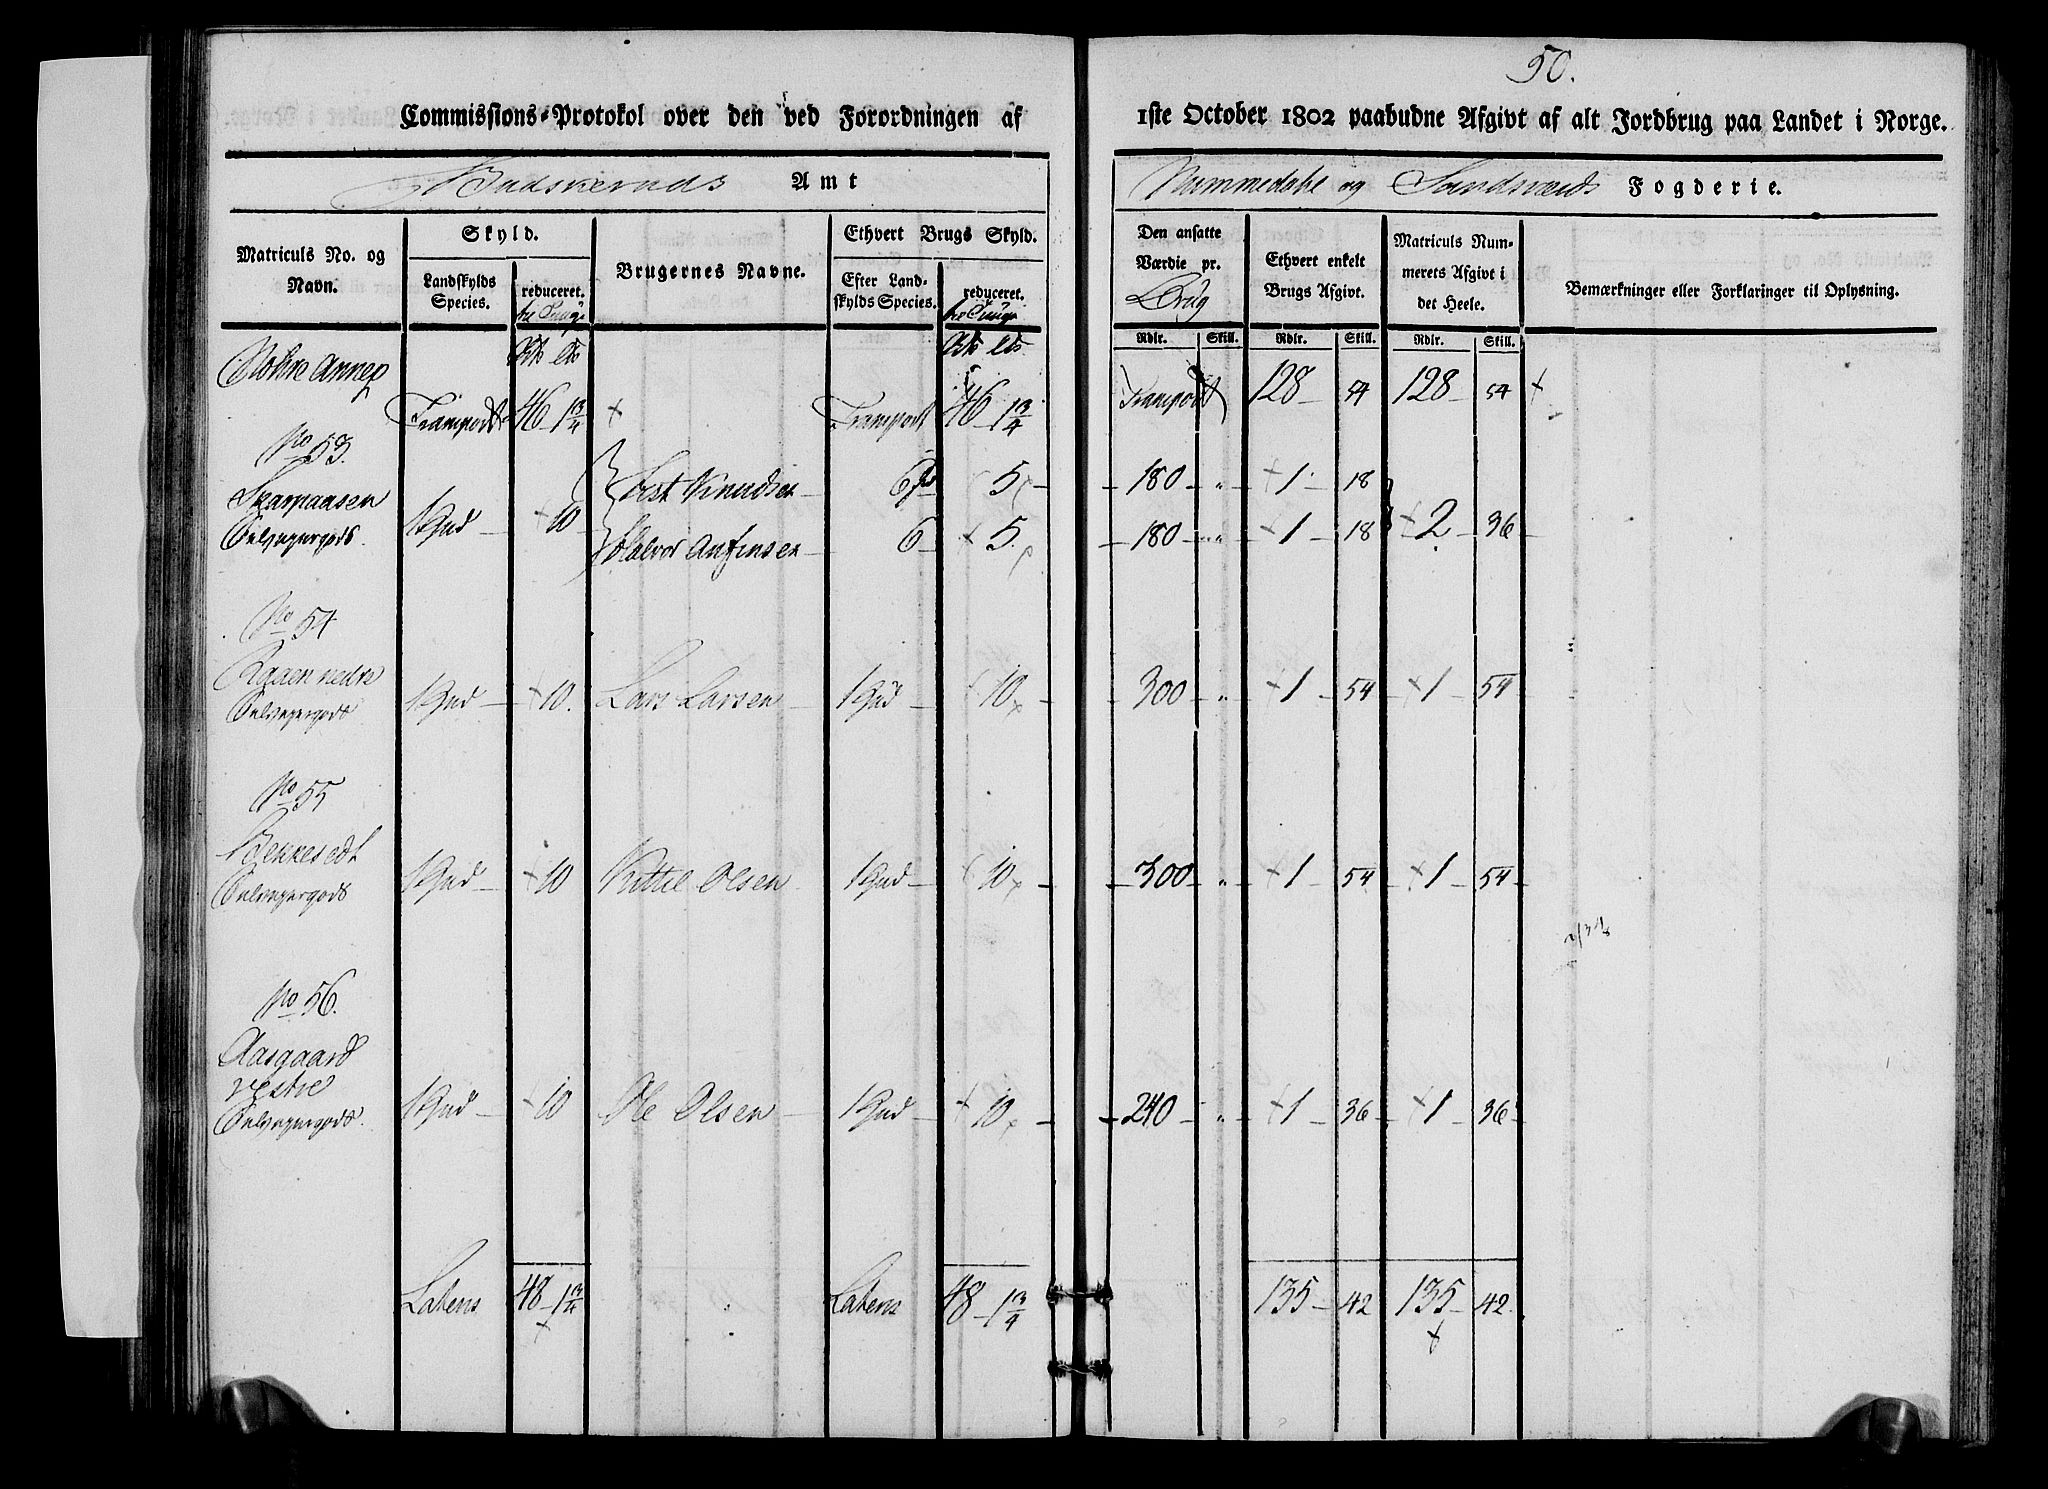 50.
Commissions-Protokol over den ved Forordningen af 1ste October 1802 paabudne Afgivt af alt Jordbrug paa Landet i Norge.
Budskeruds Amt Nummedahl og Sandsværds Fogderie.
Matriculs No. og Navn.
Skyld.
Landskylds Species.
reduceret.
Brugernes Navne.
Ethvert Brugs Skyld.
Efter Landskylds Species.
reduceret.
Den ansatte Værdie pr. Brug
Ethvert enkelt Brugs Afgivt.
Matriculs Nummerets Afgivt i det Heele.
Bemærkninger eller Forklaringer til Oplysning.
Rdlr. Skill. Rdlr. Skill. Rdlr. Skill.
Annex
Transport 46 - 1 3/4 Transport 46 - 1 3/4 Transport 128 54 128 54
No 53.
Selveyergods 1 Hud 10
Knudsen 6 5 180 " 1 18
Halvor Anfinsen 6 5 180 " 1 18 2 36
No 54
Raaen nedre
Selveyergods 1 Hud 10. Lars Larsen 1 Hud 10 300 " 1 54 1 54
No 55
Bekkesedt
Selveyergods 1 Hud 10 Kittil Olsen 1 Hud 10 300 " 1 54 1 54
No 56.
Aasgaard
vestre
Selveyergods 1 Hud 10 Ole Olsen 1 Hud 10 240 " 1 36 1 36
Lateris 48 - 1 3/4 Lateris 48 - 1 3/4 135 42 135 42